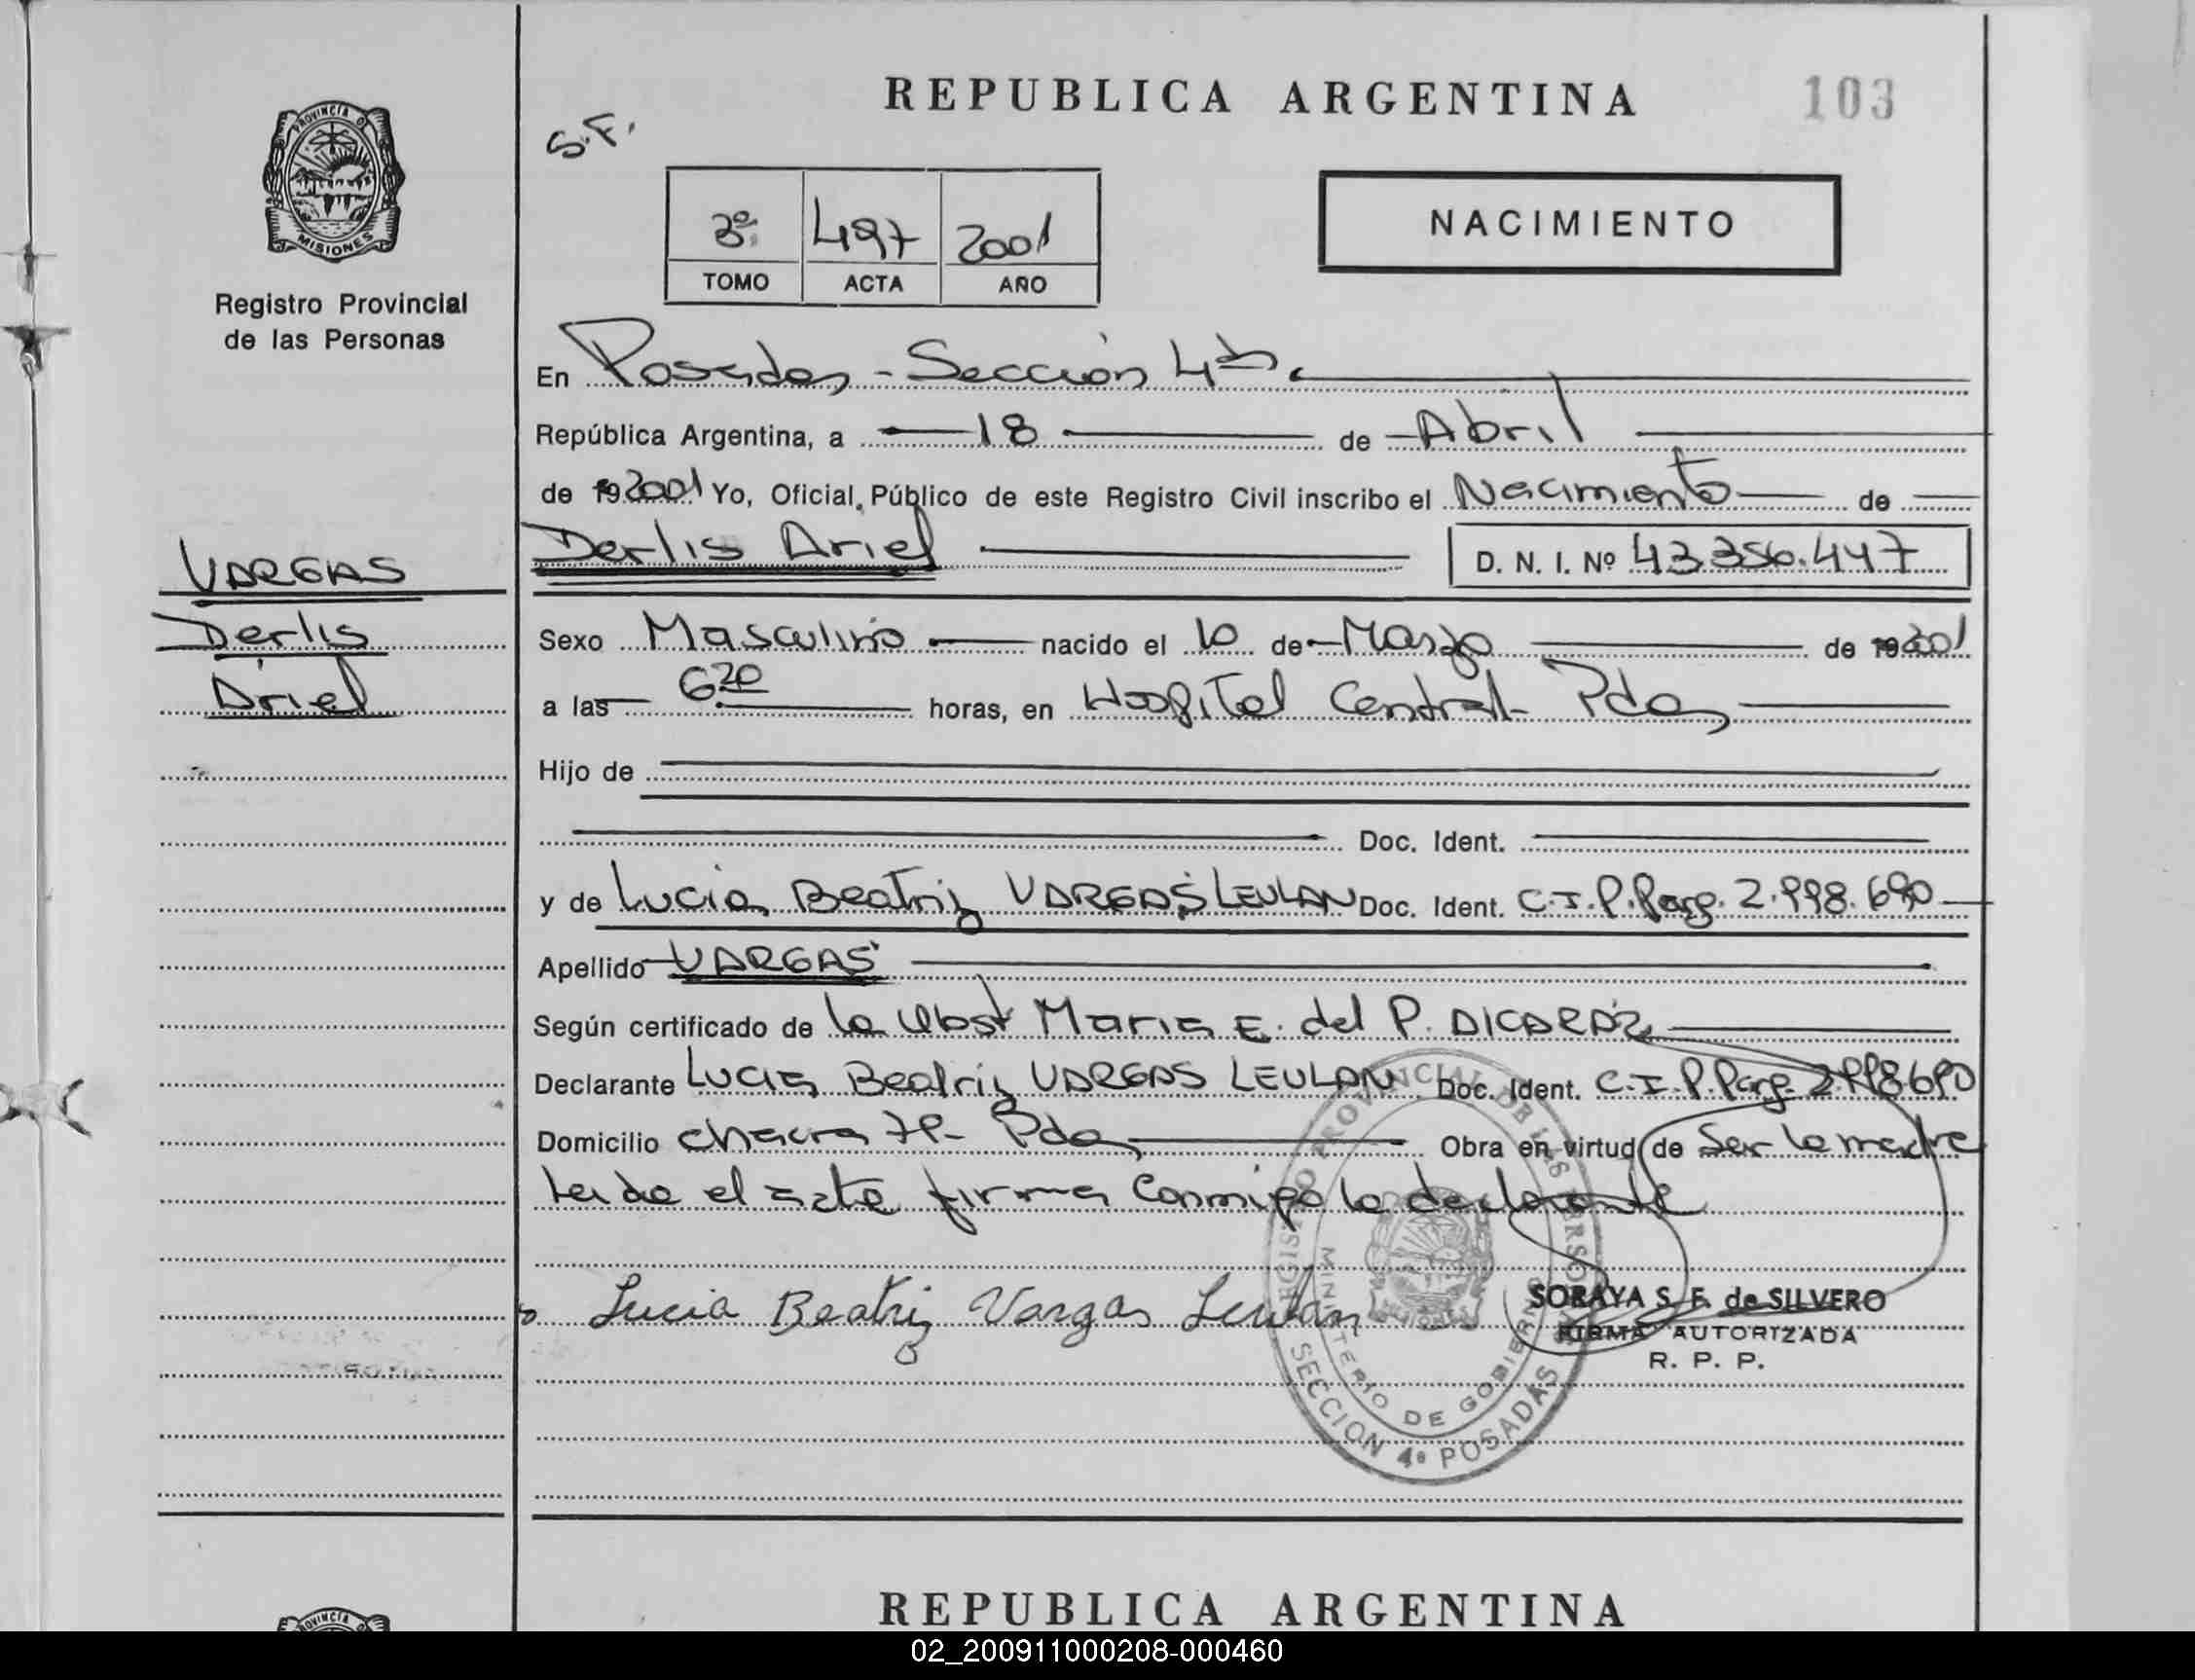 REPUBLICA ARGENTINA
103
S.F.
PROVINCIA D
MISIONES
Registro Provincial
de las Personas
3º 497 2001
TOMO ACTA AÑO
NACIMIENTO
En Posadas - Sección 4ta.
República Argentina, a 18 de Abril
de 19 2001 Yo, Oficial Público de este Registro Civil inscribo el Nacimiento de
Derlis Ariel D. N. I. Nº 43.356.447
VARGAS
Derlis
Ariel
Sexo Masculino nacido el 10 de Marzo de 19 2001
a las 6 20 horas, en Hospital Central Pdas
Hijo de
Doc. Ident.
y de Lucia Beatriz VARGAS LEULAN Doc. Ident. C.I.P.Parg. 2.998.690
Apellido VARGAS
Según certificado de la Obst Maria E. del P. DICARDZ
Declarante Lucia Beatriz VARGAS LEULAN Doc. Ident. C.I.P.Parg. 2998690
Domicilio chacra Pdas Obra en virtud de Ser la madre
Leida el acta firma Conmigo la declarante
Lucia Beatriz Vargas Leulan
REGISTRO PROVINCIAL DE LAS PERSONAS
MINISTERIO DE GOBIERNO
SECCION 4º POSADAS
SORAYA S. F. de SILVERO
FIRMA AUTORIZADA
R. P. P.
REPUBLICA ARGENTINA
02_200911000208-000460